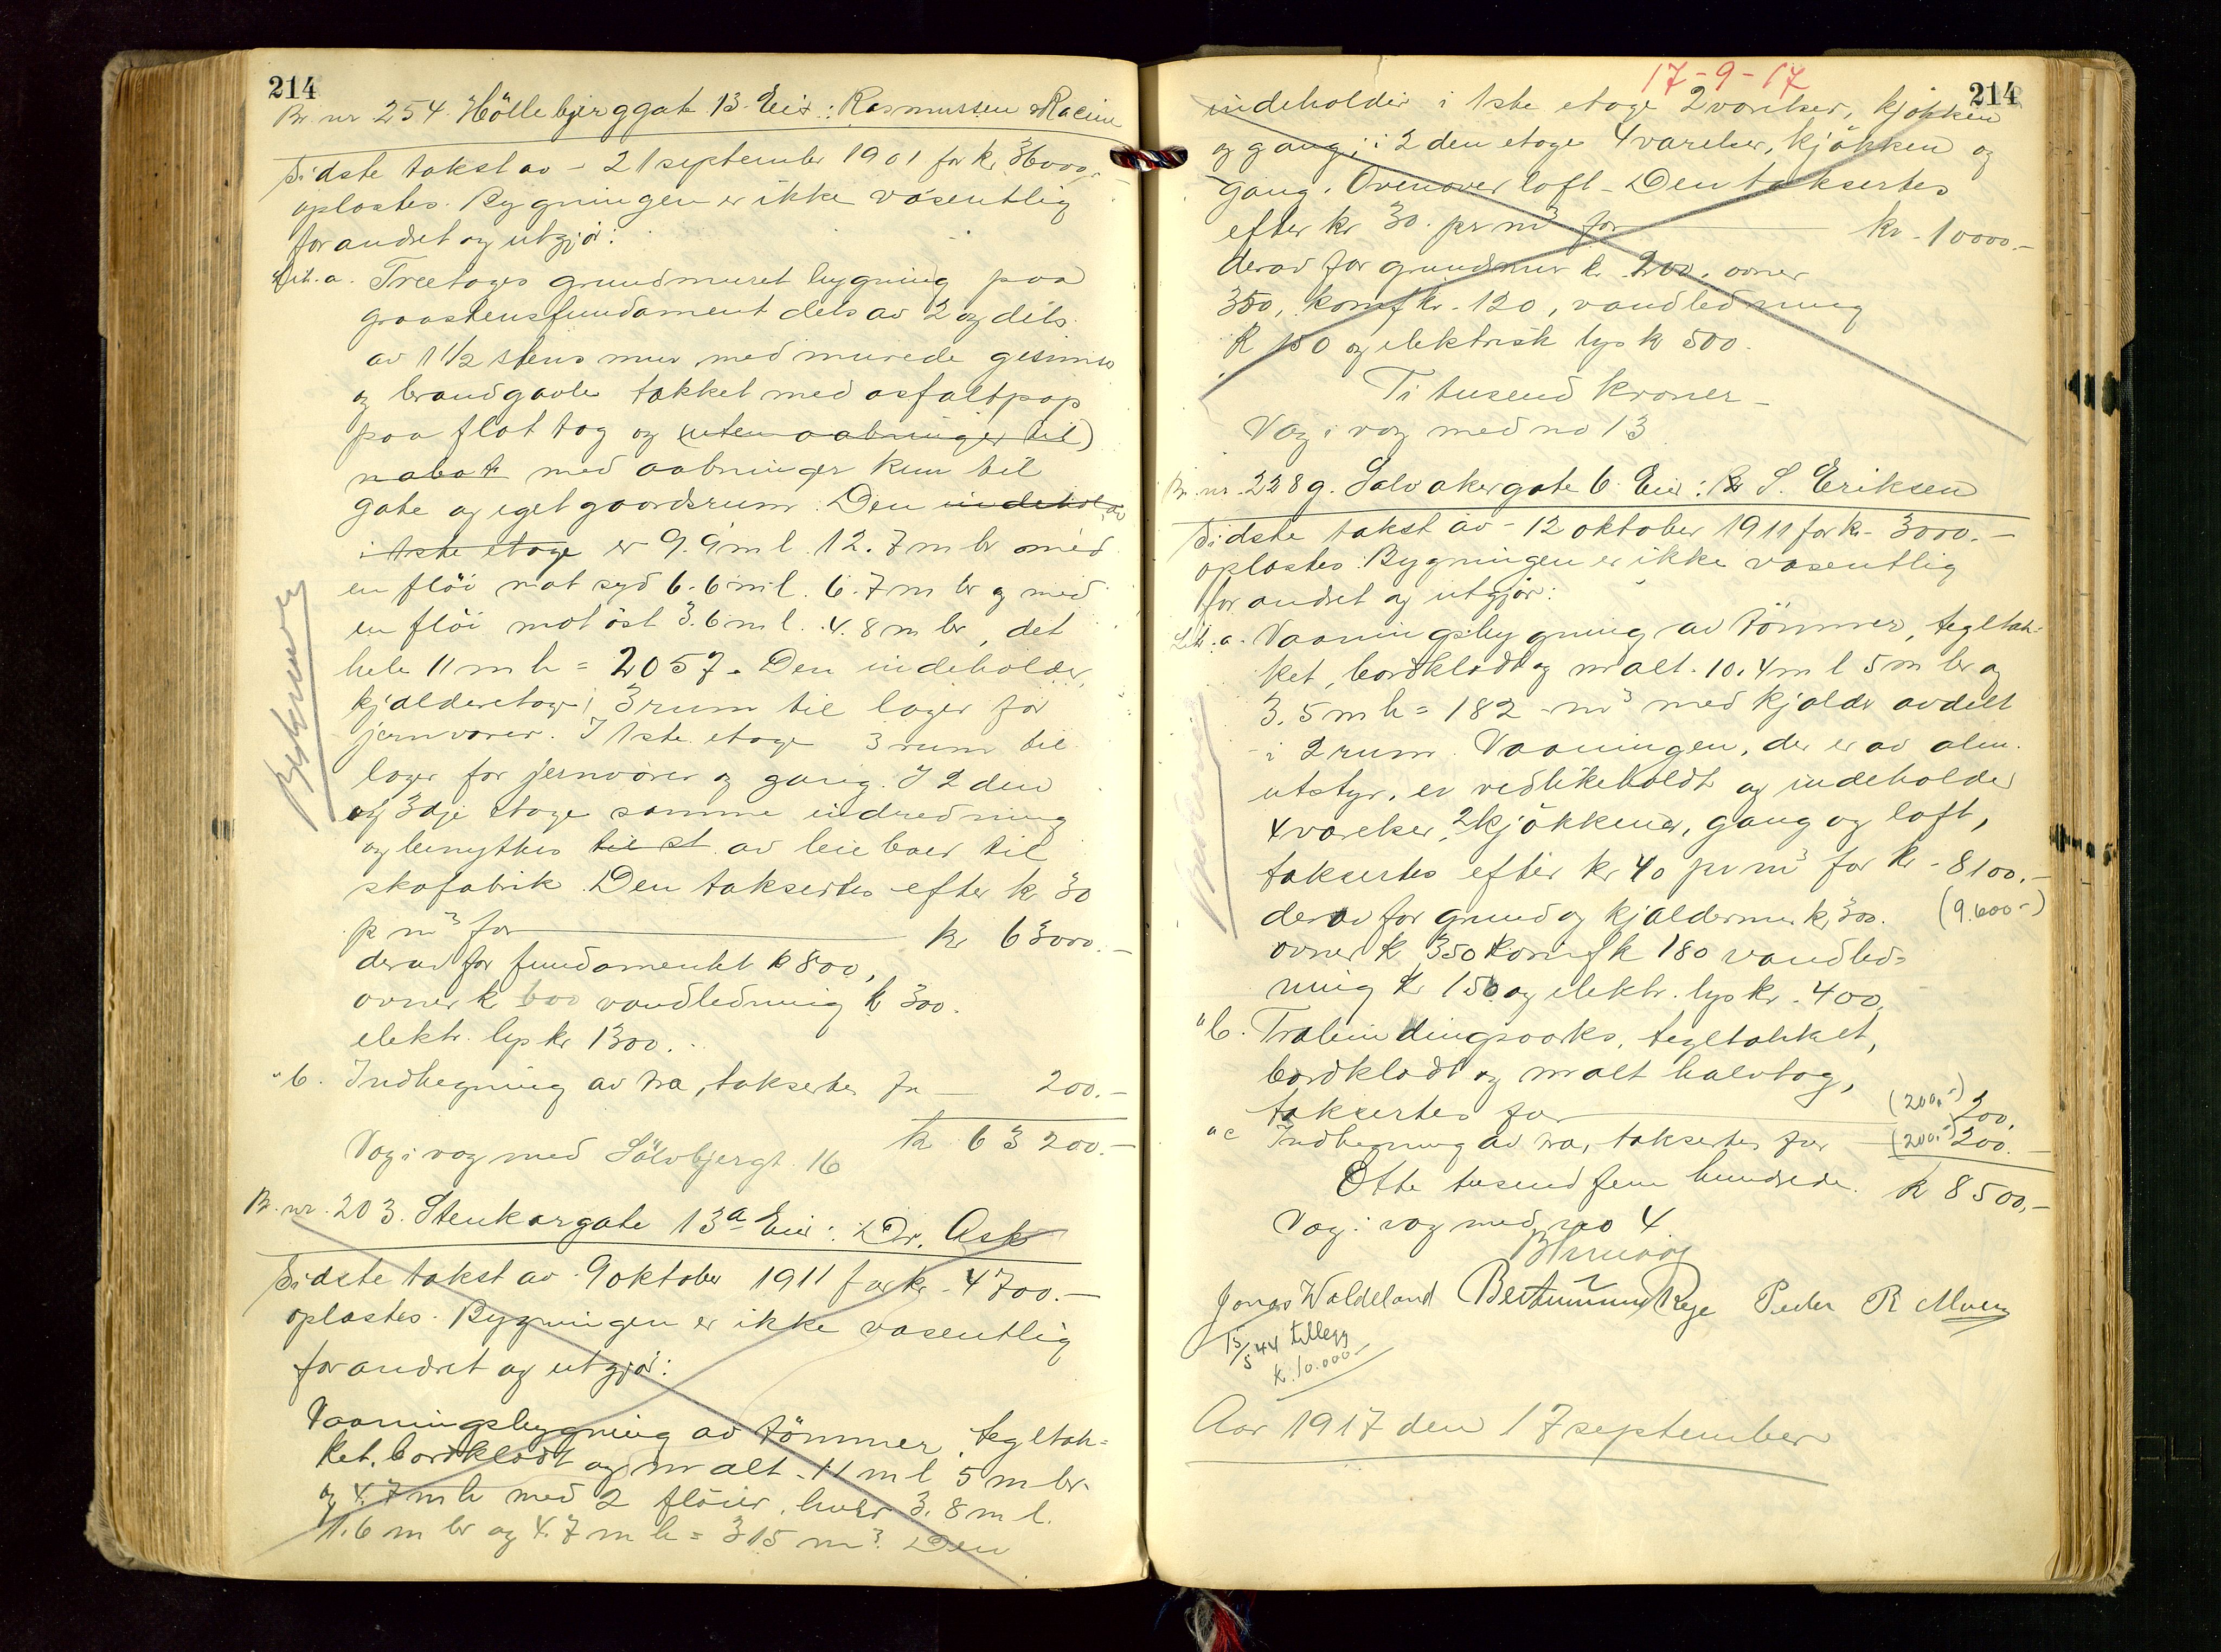 214
Br. nr 254. Höllebjerggate 13. Eier: Rasmussen & Racine
Sidste takst av - 21 september 1901 for kr. 36000.-
oplæstes. Bygningen er ikke væsentlig
forandret og utgjør:
Lit. a. Treetages grundmuret bygning paa
graastensfundament dels av 2 og dels
av 1 1/2 stens mur med murede gesimser
og brandgavle tækket med asfaltpap
paa flat tag og (uten aabninger til)
nabo med aabninger kun til
gate og eget gaardsrum. Den indeholder
i 1ste etage er 9.9 m l. 12.7 m br med
en flöi mot syd 6.6 m l. 6.7 m br og med
en flöi mot öst 3.6 m l. 4.8 m br, det
hele 11 m h = 2057. Den indeholder
kjælderetage, 3 rum til lager for
jernvarer. I 1ste etage 3 rum til
lager for jernvarer og gang. I 2den
og 3dje etage samme indredning
og benyttes til st av leieboer til
skofabrik. Den takseres efter kr 30
pr m³ for kr 63000.-
derav for fundamentet kr 800,
ovner kr 600 vandledning kr 300.
elektr. lys kr 1300.
Beskrives
" b. Indhegning av træ, takseres for 200.-
kr 63200.-
Væg i væg med Sölvbjergt. 16
Br. nr. 203. Stenkargate 13a Eier: Dr. Ask
Sidste takst av 9 oktober 1911 for kr. 4700.-
oplæstes. Bygningen er ikke væsentlig
forandret og utgjør:
Vaaningsbygning av tömmer, tegltæk-
ket, bordklædt og malt - 11 m l 5 m br
og 4.7 m h med 2 flöier, hver 3.8 m l.
1.6 m br og 4.7 m h = 315 m³. Den
17-9-17
214
indeholder i 1ste etage 2 værelser, kjökken
og gang; i 2den etage 4 værelser, kjökken og
gang. Ovenover loft - Den taksertes
efter kr 30. pr m³ for kr - 10000.-
derav for grundmur kr. 200. ovner
350, komf kr. 120, vandledning
kr 150 og elektrisk lys kr 500.
Ti tusend kroner -
Væg i væg med no 13
Br. nr. 228 g. Salvakergate 6 Eier: S. Eriksen
Sidste takst av - 12 oktober 1911 for kr - 3000.-
oplæstes. Bygningen er ikke væsentlig
forandret og utgjør:
Lit. a. Vaaningsbygning av tömmer, tegltæk-
ket, bordklædt og malt. 10.4 m l 5 m br og
3.5 m h = 182 m³ med kjælder avdelt
i 2 rum. Vaaningen, der er av alm.
utstyr, er vedlikeholdt og indeholder
4 værelser, 2 kjökkener, gang og loft,
taksertes efter kr 40 pr m³ for kr - 8100.-
(9.600-)
derav for grund og kjældermur kr 300.
ovner kr 350 komf kr 180 vandled-
ning kr 150 og elektr. lys kr. 400.
" b. Træbindingsverks, tegltækket,
bordklædt og malt halvtag,
taksertes for (200.-) 200.
" c Indhegning av træ, takseres for (200.-) 200.-
Otte tusend fem hundrede. kr 8500.-
Væg i væg med no 4
Jonas Waldeland Peder R Moen
13/5 44 tillegg
kr. 10.000.-
Aar 1917 den 17 september